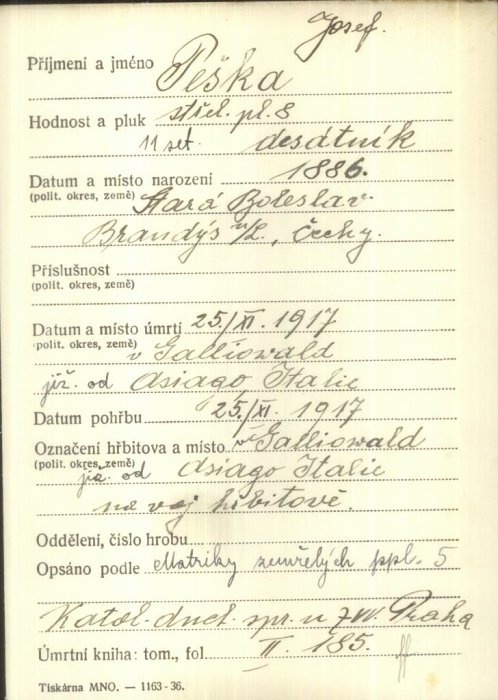 Josef.
Příjmení a jméno Peška
Hodnost a pluk střel. pl. 8
11 set. desátník
Datum a místo narození 1886.
(polit. okres, země) Stará Boleslav.
Brandýs n/L., Čechy.
Příslušnost
(polit. okres, země)
Datum a místo úmrtí 25./XI. 1917
(polit. okres, země) v Galliowald
již. od Asiago, Italie
Datum pohřbu 25./XI. 1917
Označení hřbitova a místo ve Galliowald
(polit. okres, země) již. od Asiago Italie
na voj hřbitově.
Oddělení, číslo hrobu
Opsáno podle Matriky zemřelých ppl. 5
Katol. duch. spr. u ZVV. Praha
Úmrtní kniha: tom., fol. II. 185.
Tiskárna MNO. — 1163-36.